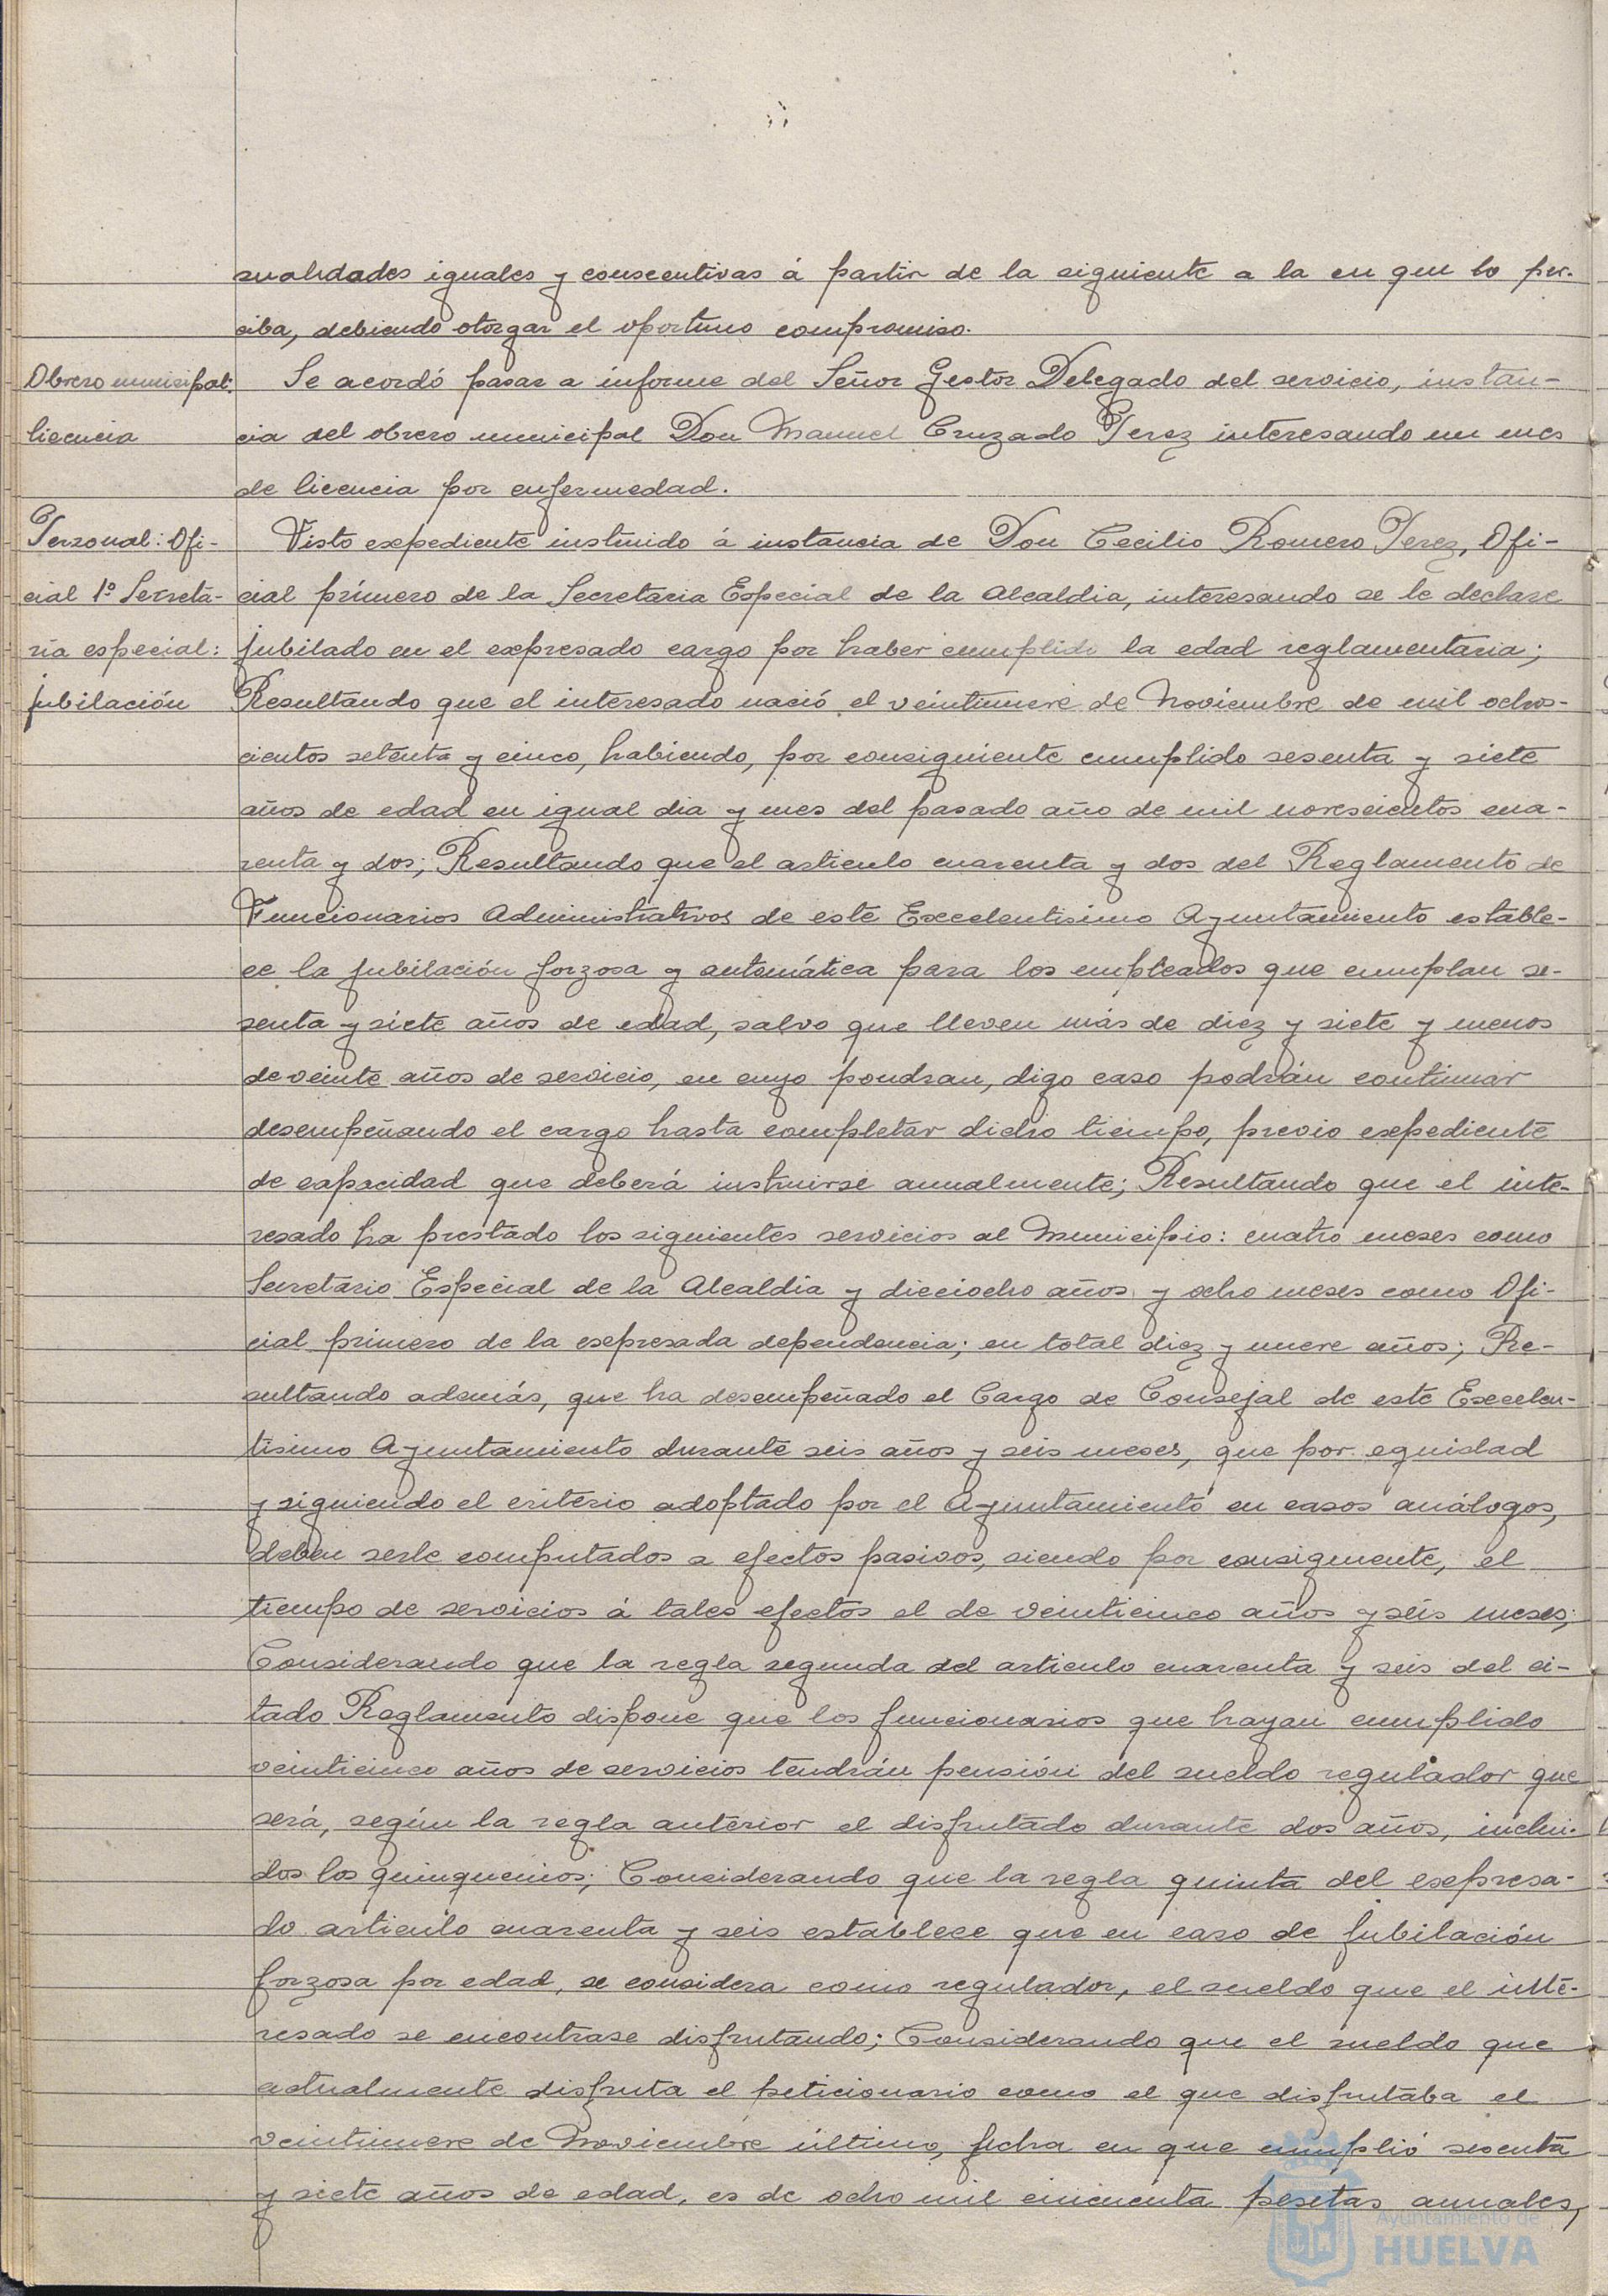 sualidades iguales y consecutivas á partir de la siguiente a la en que lo per-
ciba, debiendo otorgar el oportuno compromiso.
Obrero municipal: Se acordó pasar a informe del Señor Gestor Delegado del servicio, instan-
licencia cia del obrero municipal Don Manuel Cruzado Perez interesando un mes
de licencia por enfermedad.
Personal: Ofi- Visto expediente instruido á instancia de Don Cecilio Romero Perez, Ofi-
cial 1º Secreta- cial primero de la Secretaria Especial de la Alcaldia, interesando se le declare
ria especial: jubilado en el expresado cargo por haber cumplido la edad reglamentaria;
jubilación Resultando que el interesado nació el veintinueve de Noviembre de mil ochos-
cientos setenta y cinco, habiendo, por consiguiente cumplido sesenta y siete
años de edad en igual dia y mes del pasado año de mil novescientos cua-
renta y dos; Resultando que el articulo cuarenta y dos del Reglamento de
Funcionarios Administrativos de este Excelentisimo Ayuntamiento estable-
ce la jubilación forzosa y automática para los empleados que cumplan se-
senta y siete años de edad, salvo que lleven más de diez y siete y menos
de veinte años de servicio, en cuyo pondran, digo caso podrán continuar
desempeñando el cargo hasta completar dicho tiempo, previo expediente
de capacidad que deberá instruirse anualmente; Resultando que el inte-
resado ha prestado los siguientes servicios al Municipio: cuatro meses como
Secretario Especial de la Alcaldia y dieciocho años y ocho meses como Ofi-
cial primero de la expresada dependencia; en total diez y nueve años; Re-
sultando además, que ha desempeñado el Cargo de Consejal de este Excelen-
tisimo Ayuntamiento durante seis años y seis meses, que por equidad
y siguiendo el criterio adoptado por el Ayuntamiento en casos análogos,
deben serle computados a efectos pasivos, siendo por consiguiente, el
tiempo de servicios á tales efectos el de veinticinco años y seis meses;
Considerando que la regla segunda del articulo cuarenta y seis del ci-
tado Reglamento dispone que los funcionarios que hayan cumplido
veinticinco años de servicios tendrán pensión del sueldo regulador que
será, según la regla anterior el disfrutado durante dos años, inclui-
dos los quinquenios; Considerando que la regla quinta del expresa-
do articulo cuarenta y seis establece que en caso de jubilación
forzosa por edad, se considera como regulador, el sueldo que el inte-
resado se encontrase disfrutando; Considerando que el sueldo que
actualmente disfruta el peticionario como el que disfrutaba el
veintinueve de Noviembre último, fecha en que cumplió sesenta
y siete años de edad, es de ocho mil cincuenta pesetas anuales,
Ayuntamiento de
HUELVA